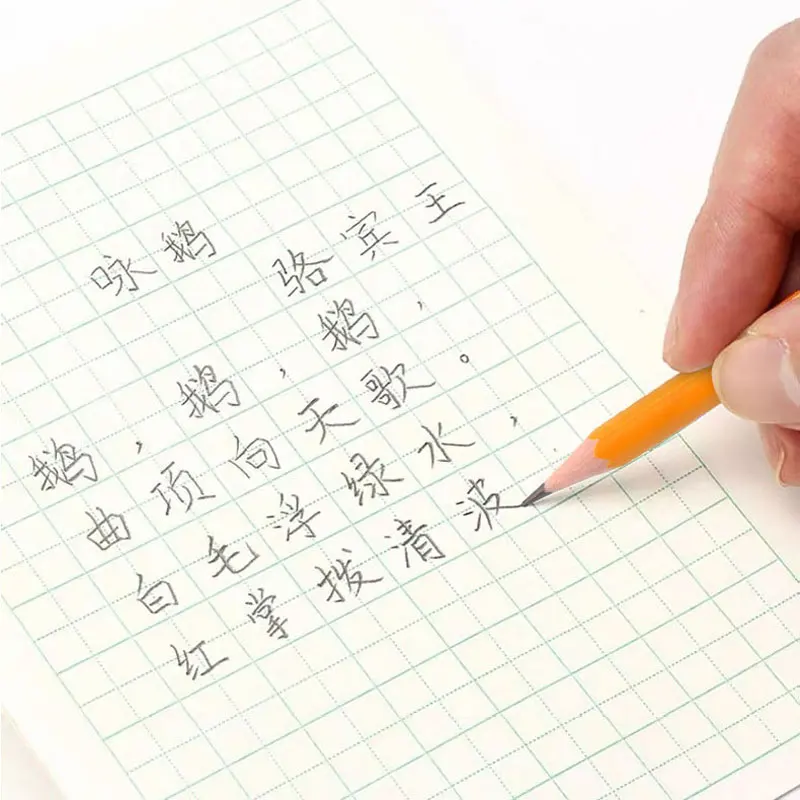 咏鹅 骆宾王
鹅，鹅，鹅，
曲项向天歌。
白毛浮绿水，
红掌拨清波